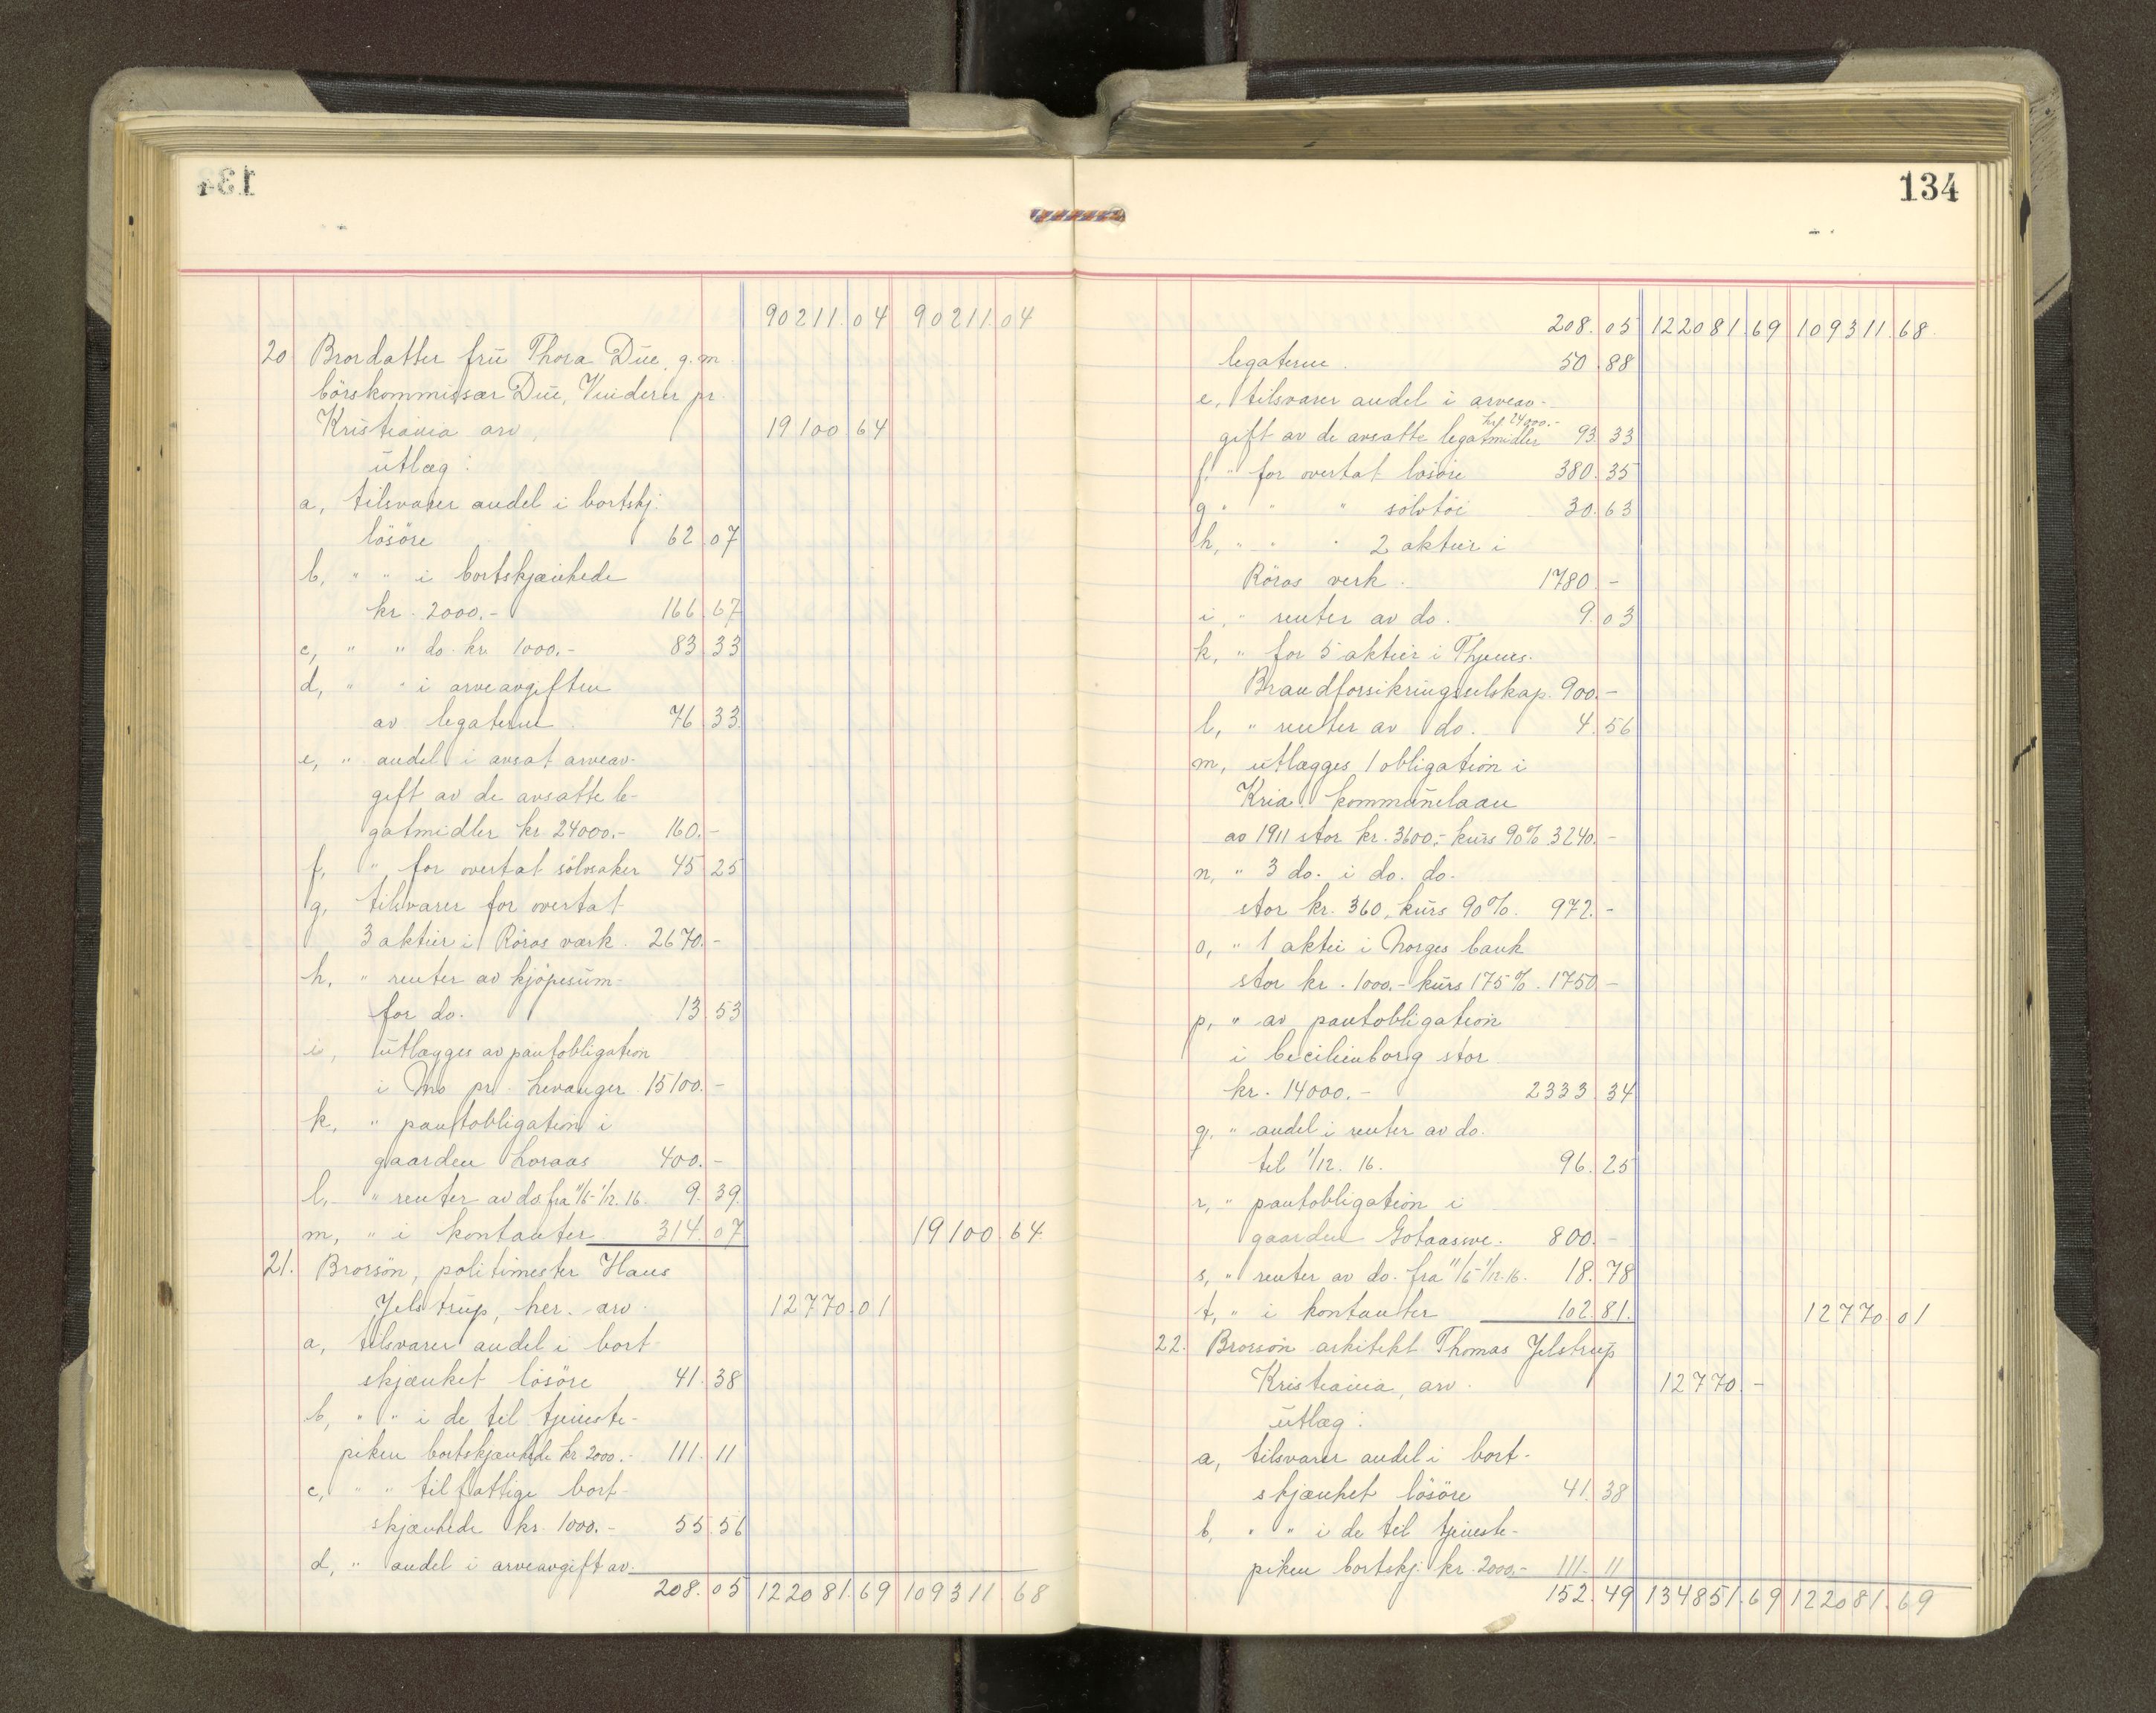 134
90211.04 90211.04
20 Brordatter frü Thora Düe, g.m.
börskommissær Düe, Vinderen pr.
Kristiania arv, 19100 64
ütlæg:
a, tilsvarer andel i bortskj.
lösöre 62.07
b, " " i bortskjænkede
kr. 2000.- 166.67
c, " " do kr. 1000.- 83 33
d, " " i arveavgiften
av legaterne 76.33
e, " andel i avsat arveav-
gift av de avsatte le-
gatmidler kr 24000.- 160.-
f, " for overtat sölvsaker 45 25
g, tilsvarer for overtat
3 aktier i Röros værk. 2670.-
h, " renter av kjöpesüm-
for do. 13 53
i, ütlægges av pantobligation
i Mo pr. Levanger 15100.-
k, " pantobligation i
gaarden Loraas 400.-
l, " renter av do fra 11/5-1/12.16. 9.39.
m, " i kontanter 314.07 19100.64.
21. Brorsön, politimester Hans
Jelstrüp, her. arv. 12770.01
a, tilsvarer andel i bort
skjænket lösöre 41.38
b, " " i de til tjeneste-
piken bortskjænkede kr 2000.- 111.11
c, " " til fattige bort-
skjænkede kr. 1000.- 55.56
d, " andel i arveavgift av.
208.05 122081.69 109311.68
134
208.05 122081.69 109311.68.
legaterne. 50.88
e, tilsvarer andel i arveav-
kr. 24000.-
gift av de avsatte legatmidler 93 33
f. " for overtat lösöre 380.35
g " " " sölvtöi 30.63
h, " " " 2 aktier i
Röros verk. 1780.-
i, " renter av do. 9.03
k, " for 5 aktier i Thjems.
Brandforsikringsselskap. 900.-
l, " renter av do. 4.56
m, ütlægges 1 obligation i
Kria. kommünelaan
av 1911 stor kr. 3600.- kürs 90% 3240.-
n, " 3 do. i do. do.
stor kr. 360, kürs 90%. 972.-
o, " 1 aktie i Norges bank
stor kr. 1000.- kürs 175%. 1750 -
p, " av pantobligation
i Cecilienborg stor
kr. 14000.- 2333.34
q, " andel i renter av do.
til 1/12. 16. 96.25
r, " pantobligation i
gaarden Gotaasvæ. 800.-
s, " renter av do. fra 11/5-1/12.16. 18.78
t, " i kontanter 102.81. 12770.01
22. Brorsön arkitekt Thomas Jelstrüp
Kristiania, arv. 12770.-
ütlæg:
a, tilsvarer andel i bort-
skjænket lösöre 41.38
b, " " i de til tjeneste-
piken bortskj. kr. 2000.- 111.11
152.49 134851.69 122081.69